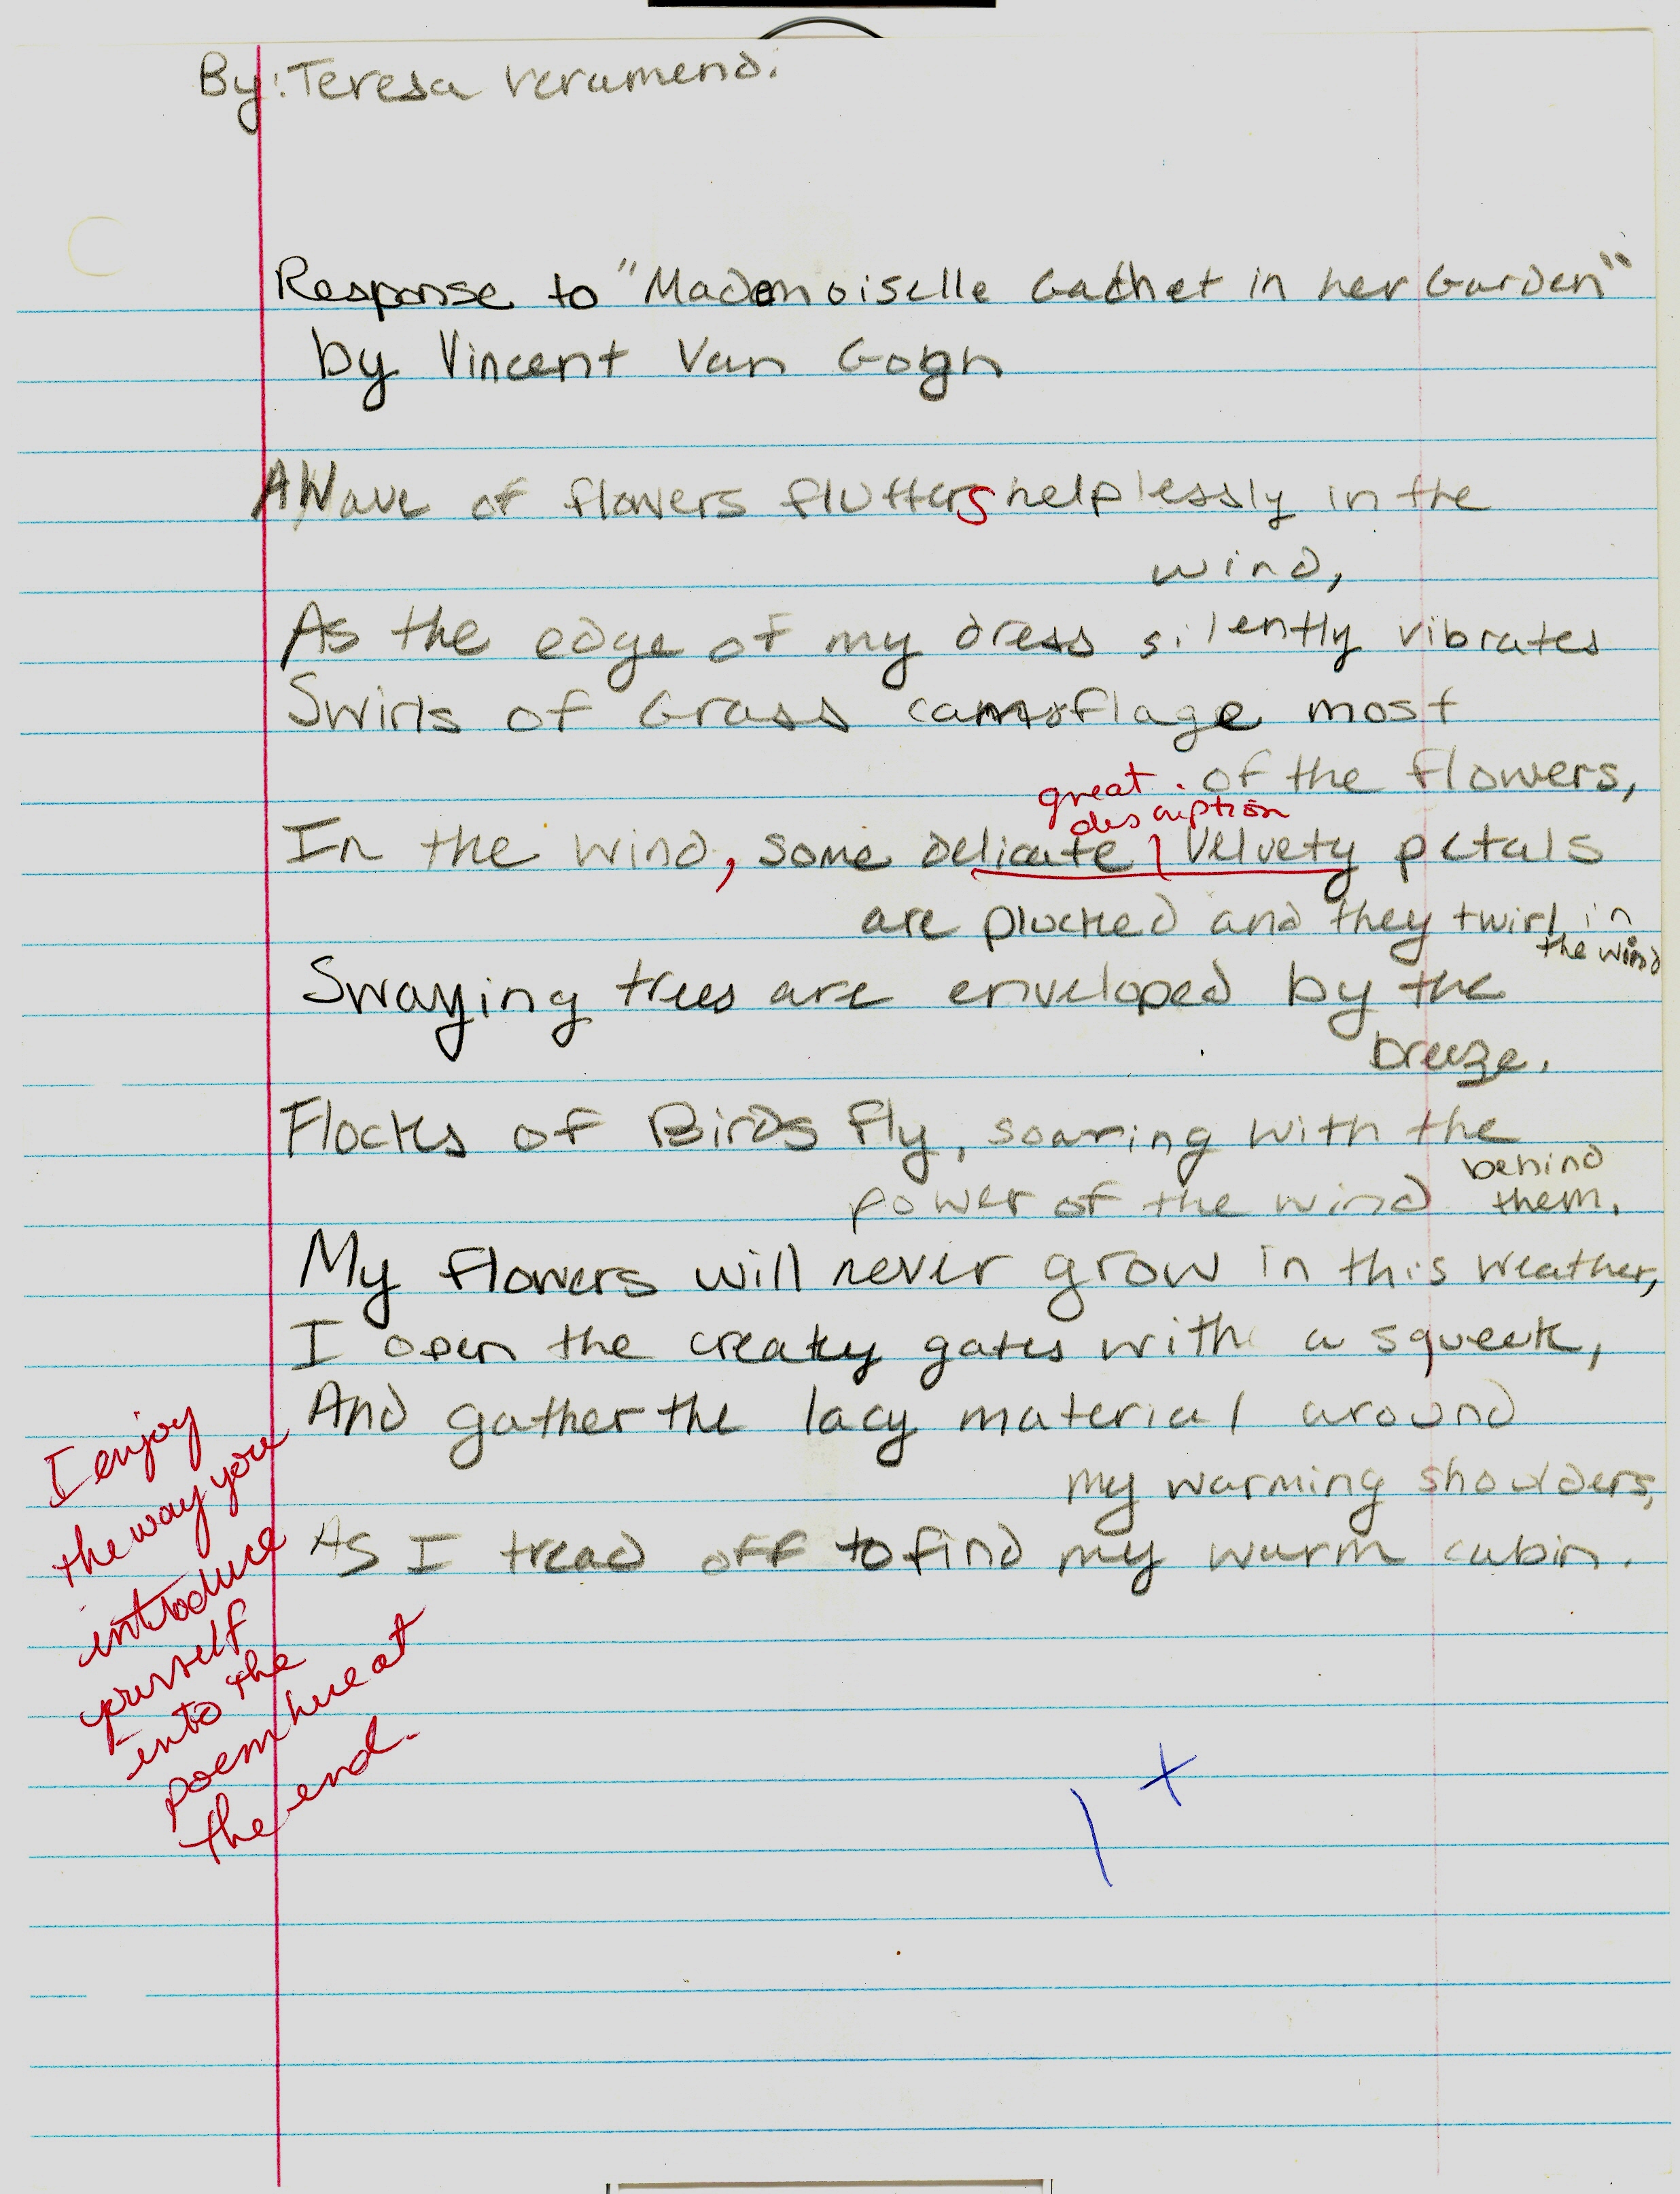 By: Teresa Veramendi
Response to "Mademoiselle Gachet in her Garden"
by Vincent Van Gogh
A Wave of flowers flutters helplessly in the
wind,
As the edge of my dress silently vibrates
Swirls of Grass camoflage most
of the flowers,
great description
In the wind, some delicate, velvety petals
are plucked and they twirl in
the wind
Swaying trees are enveloped by the
breeze.
Flocks of Birds fly, soaring with the
power of the wind behind
them.
My flowers will never grow in this weather,
I open the creaky gates with a squeek,
And gather the lacy material around
my warming shoulders,
As I tread off to find my warm cabin.
I enjoy
the way you
introduce
yourself
into the
poem here at
the end.
1+